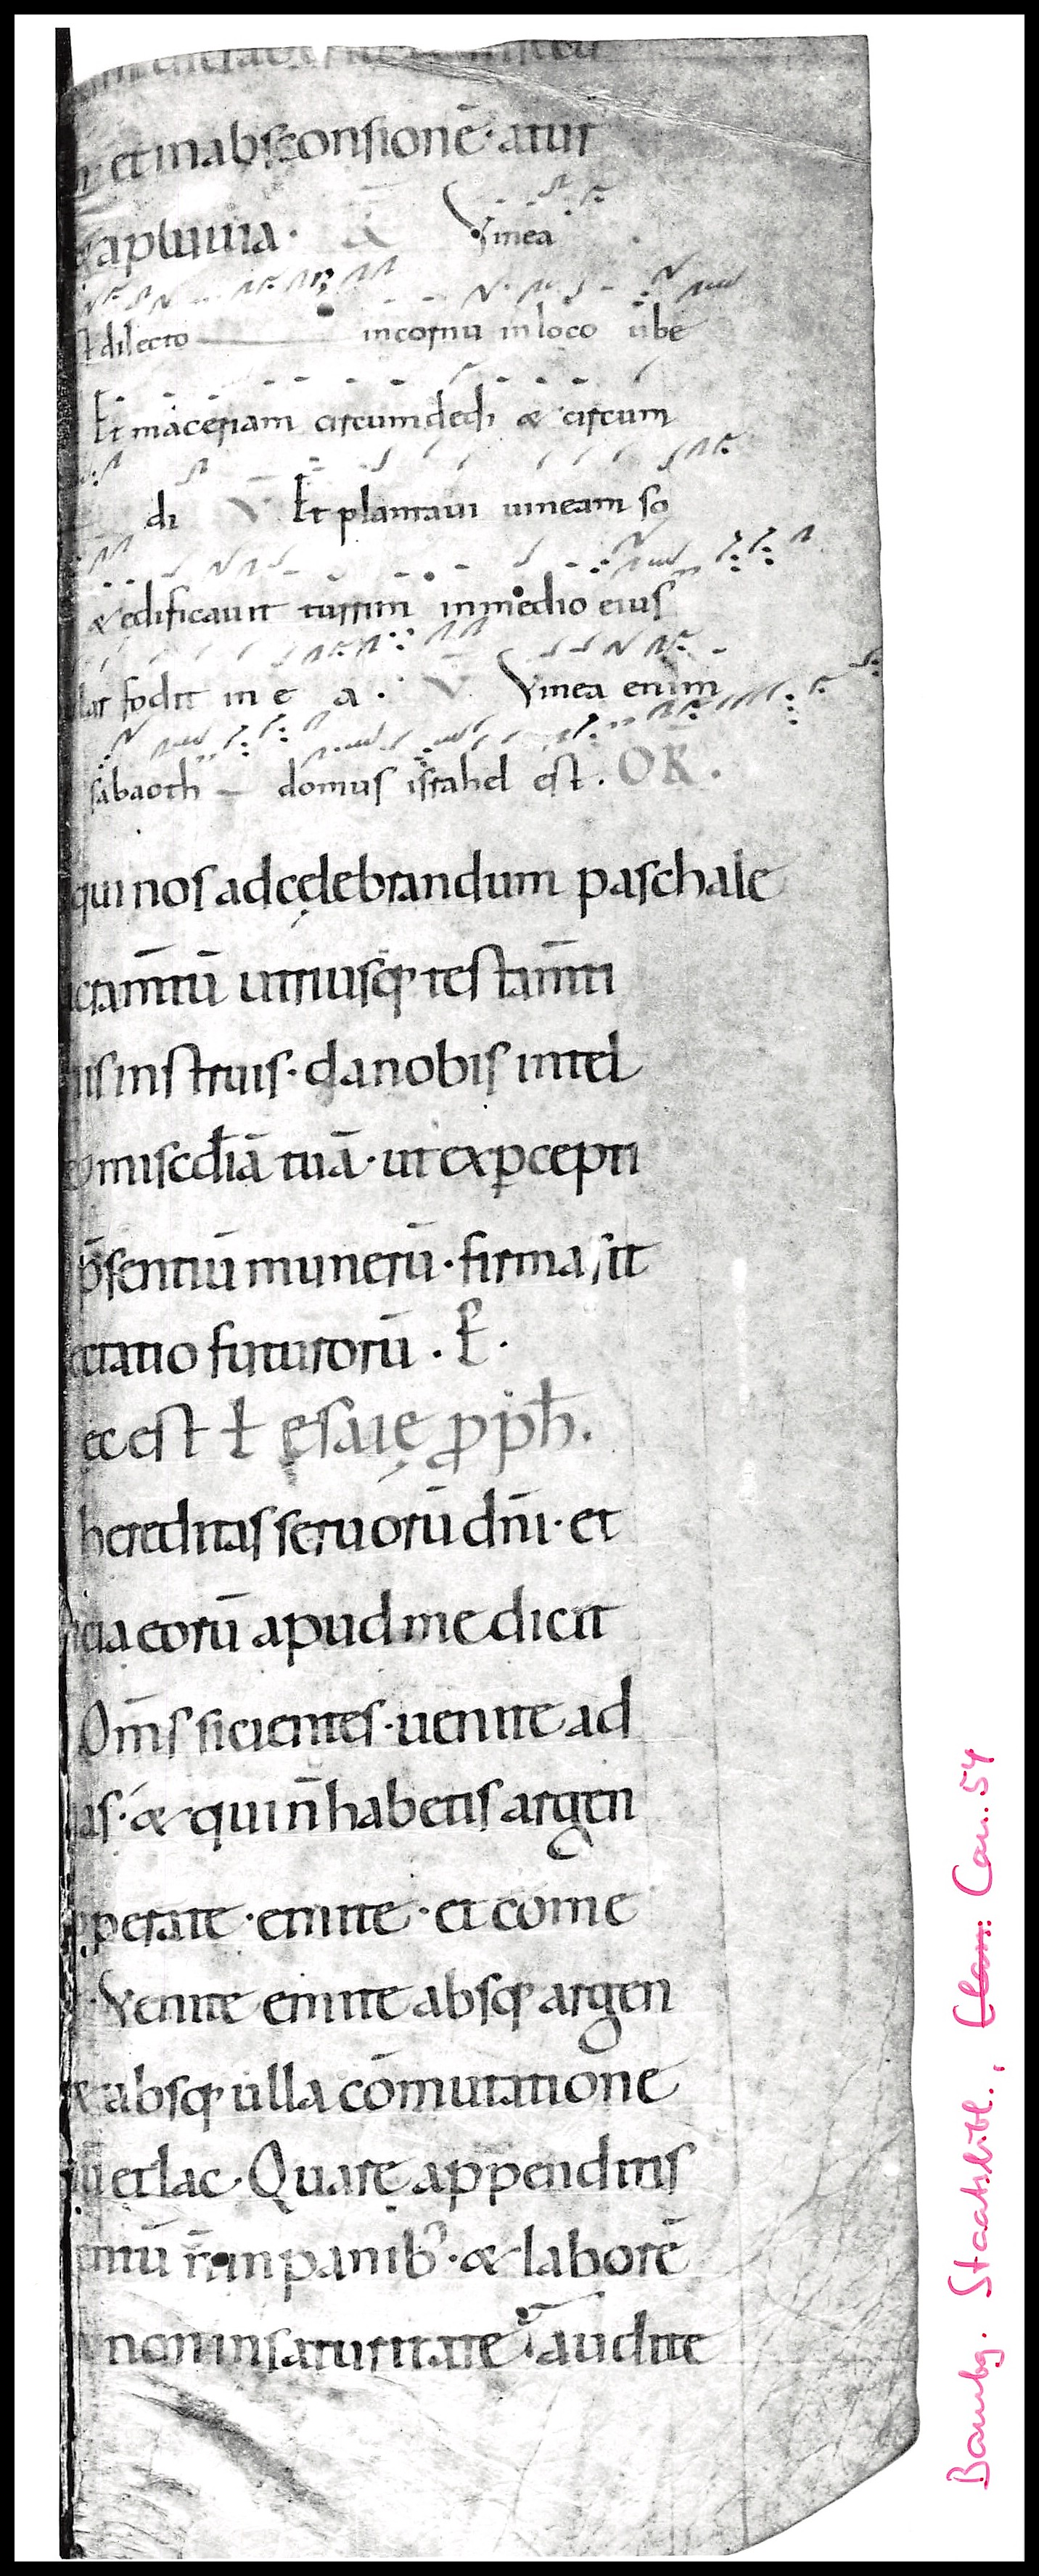 et in absconsionē· a tur
a pluuia. R Vinea
dilecto in cornu in loco ube
Et maceriam circumdedi & circum
di V Et plantaui uineam so
& edificauit turrim in medio eius
fodit in e a. V Vinea enim
sabaoth domus israhel est. OR̄.
qui nos ad cęlebrandum paschale
cram̄tū utriusq; testam̄ti
instruis· da nobis intel
misc̄diā tuā· ut ex ꝑcepti
p̄sentiū munerū· firma sit
ctatio futurorū.
ec est ł ęsaię ꝓph̄.
hereditas seruorū dn̄i· et
cia eorū apud me dicit
Om̄s sicientes· uenite ad
as· & qui n̄ habetis argen
perate· emite· et come
Venite emite absq; argen
& absq; ulla cōmutatione
ū et lac· Quare appenditis
ntū n̄ in panib;· & laborē
non in saturitate· audite
Bambg. Staatsbibl., Can. 54